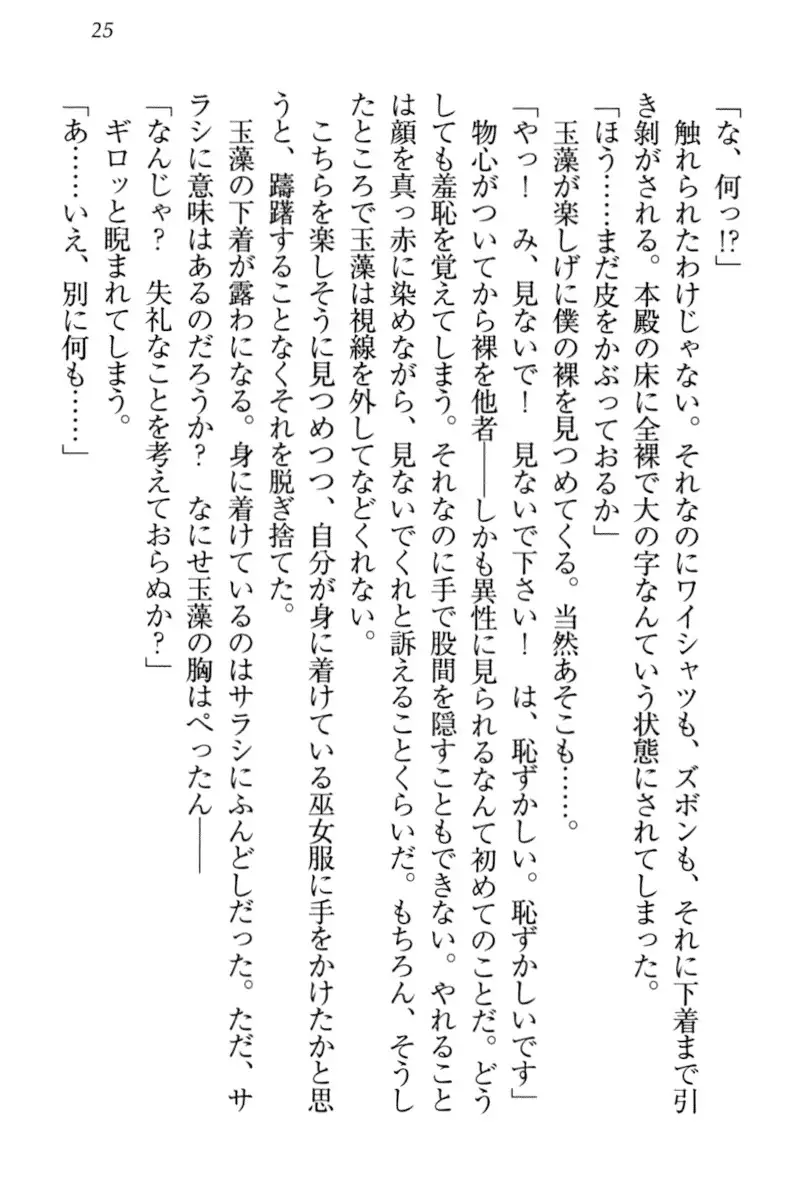 25
「な、何っ!?」
　触れられたわけじゃない。それなのにワイシャツも、ズボンも、それに下着まで引
き剝がされる。本殿の床に全裸で大の字なんていう状態にされてしまった。
「ほう……まだ皮をかぶっておるか」
　玉藻が楽しげに僕の裸を見つめてくる。当然あそこも……。
「やっ！　み、見ないで！　見ないで下さい！　は、恥ずかしい。恥ずかしいです」
　物心がついてから裸を他者――しかも異性に見られるなんて初めてのことだ。どう
しても羞恥を覚えてしまう。それなのに手で股間を隠すこともできない。やれること
は顔を真っ赤に染めながら、見ないでくれと訴えることくらいだ。もちろん、そうし
たところで玉藻は視線を外してなどくれない。
　こちらを楽しそうに見つめつつ、自分が身に着けている巫女服に手をかけたかと思
うと、躊躇することなくそれを脱ぎ捨てた。
　玉藻の下着が露わになる。身に着けているのはサラシにふんどしだった。ただ、サ
ラシに意味はあるのだろうか？　なにせ玉藻の胸はぺったん――
「なんじゃ？　失礼なことを考えておらぬか？」
　ギロッと睨まれてしまう。
「あ……いえ、別に何も……」